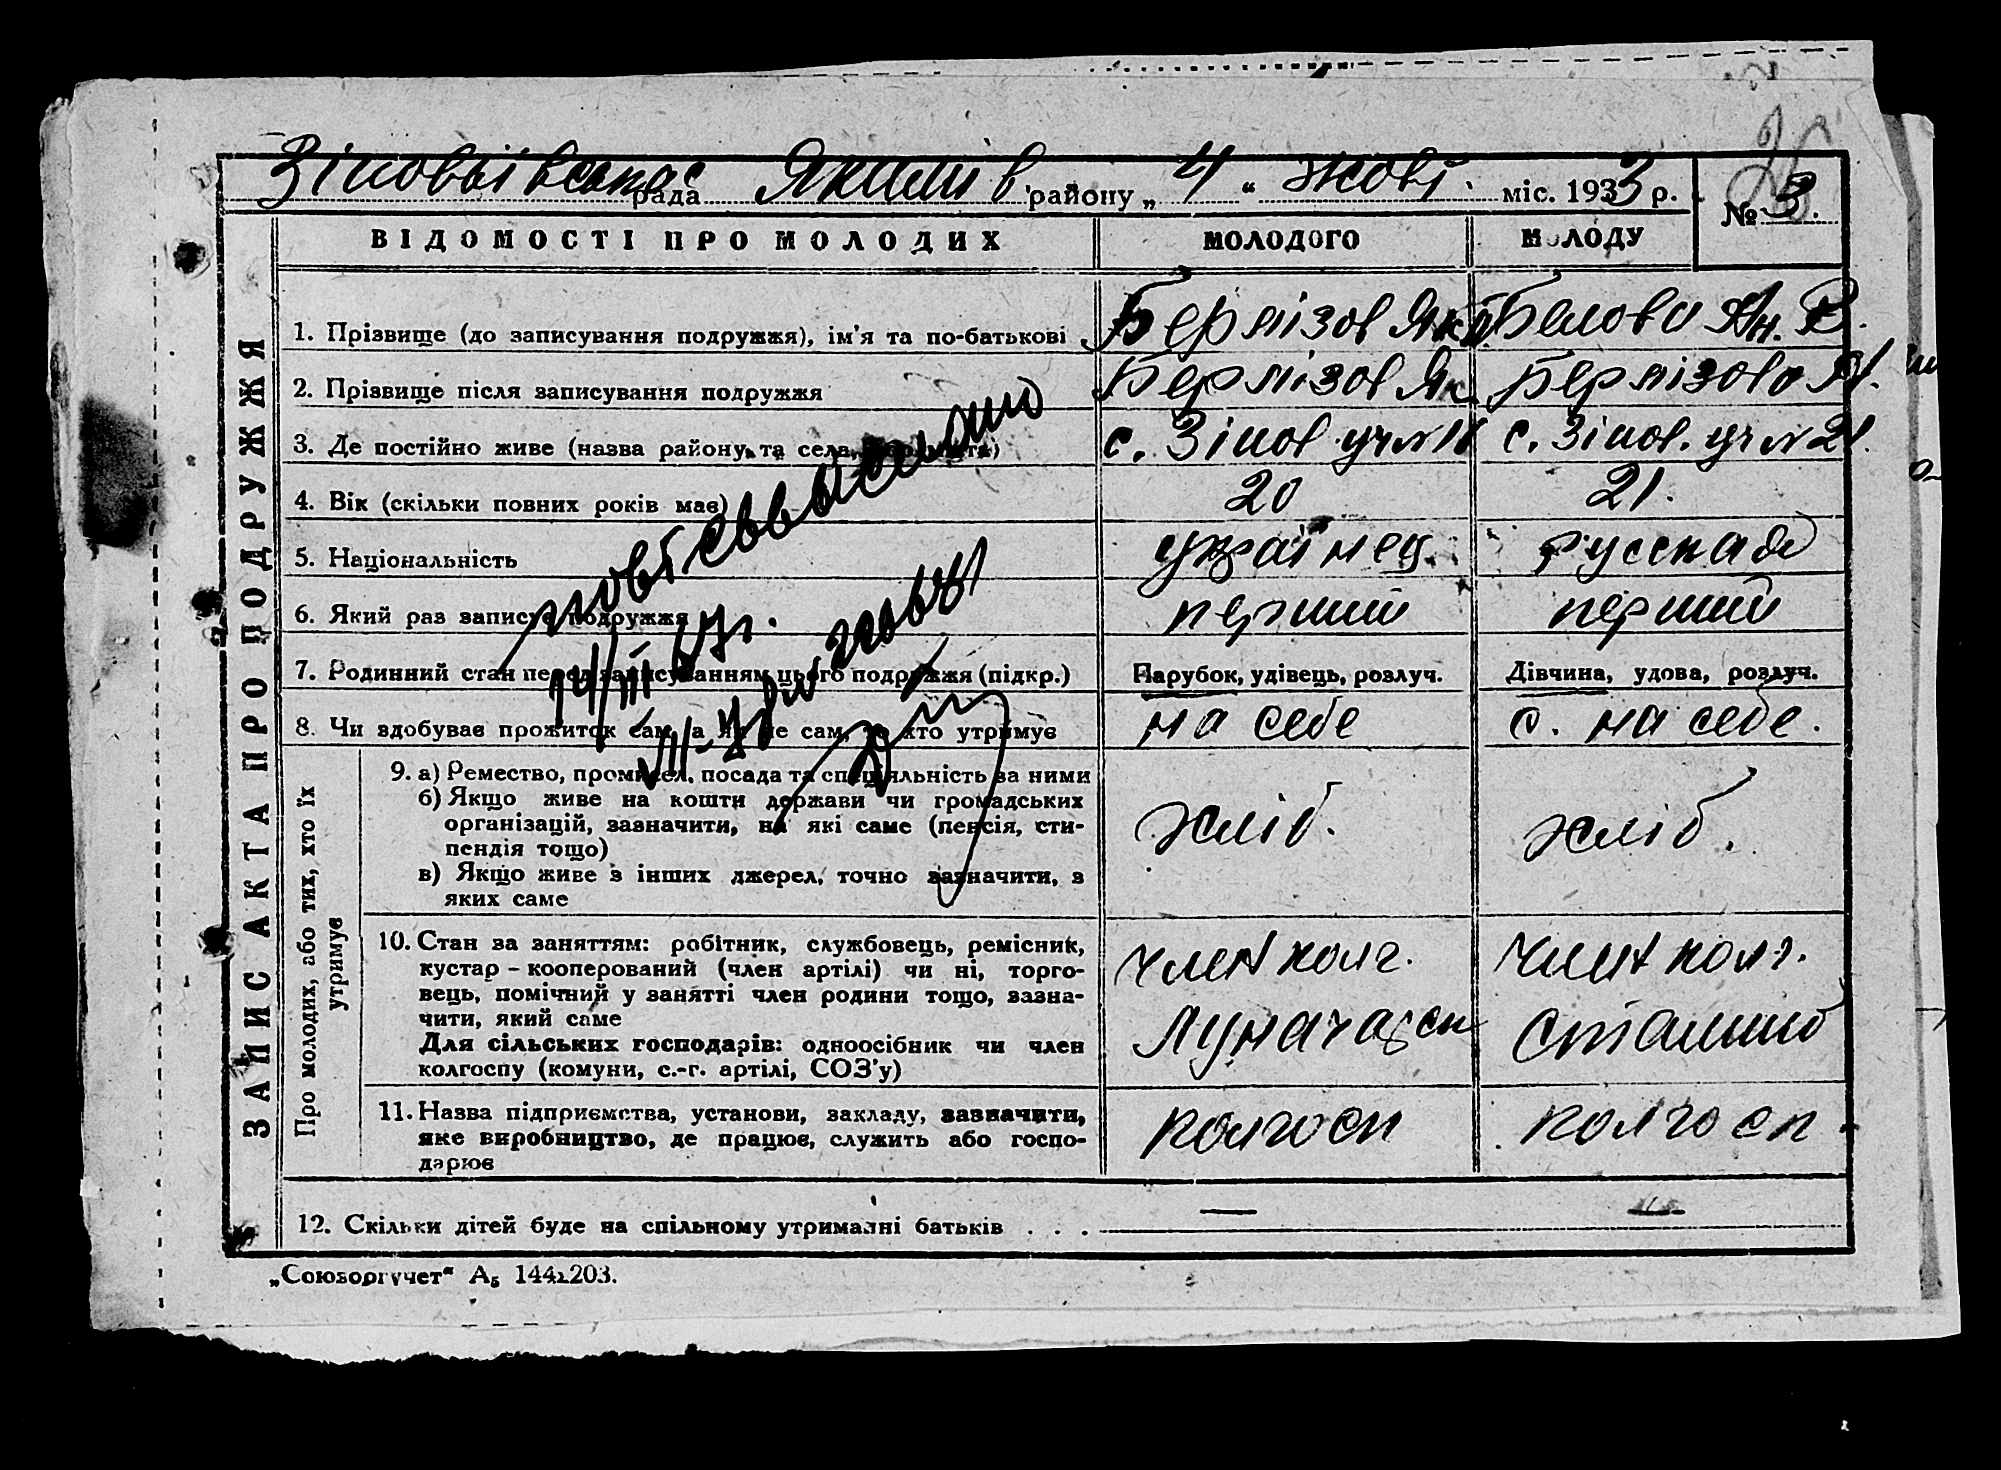 рада Якимів району „4“ жовт. міс. 1933 р.
№ 3.
ВІДОМОСТІ ПРО МОЛОДИХ МОЛОДОГО МОЛОДУ
ЗАПИС АКТА ПРО ПОДРУЖЖЯ
1. Прізвище (до записування подружжя), ім'я та по-батькові Бернізов Белова Ан. В.
2. Прізвище після записування подружжя Бернізов Як. Бернізова А.
3. Де постійно живе (назва району та села, або міста) с. Зінов. с. Зінов. уч N 21.
4. Вік (скільки повних років має) 20 21.
5. Національність українец. русская
6. Який раз записує подружжя перший перший
7. Родинний стан перед записуванням цього подружжя (підкр.) Парубок, удівець, розлуч. Дівчина, удова, розлуч.
8. Чи здобуває прожиток сам, а як не сам, то хто утримує на себе с. на себе.
Про молодих, або тих, хто їх утримує
9. а) Ремество, промисел, посада та спеціяльність за ними
б) Якщо живе на кошти держави чи громадських
організацій, зазначити, на які саме (пенсія, сти-
пендія тощо)
в) Якщо живе з інших джерел, точно зазначити, з
яких саме
хліб. хліб.
10. Стан за заняттям: робітник, службовець, ремісник,
кустар – кооперований (член артілі) чи ні, торго-
вець, помічний у занятті член родини тощо, зазна-
чити, який саме
Для сільських господарів: одноосібник чи член
колгоспу (комуни, с.-г. артілі, СОЗ'у)
член колг. член колг.
Луначарск Сталино
11. Назва підприємства, установи, закладу, зазначити,
яке виробництво, де працює, служить або госпо-
дарює
колгосп колгосп
12. Скільки дітей буде на спільному утриманні батьків . . . — —
„Союзоргучет“